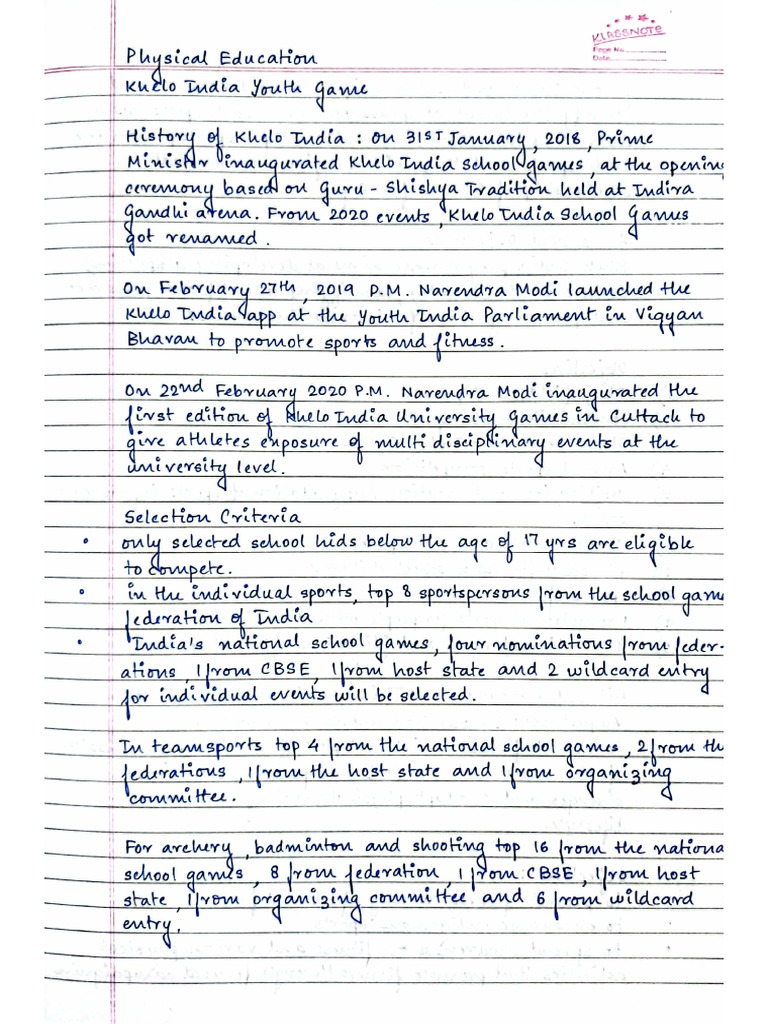 KLASSNOTE
Page No.
Date.
Physical Education
Khelo India Youth Game
History of Khelo India : On 31ST January, 2018, Prime
Minister inaugurated Khelo India School games, at the opening
ceremony based on Guru - Shishya Tradition held at Indira
Gandhi arena. From 2020 events, Khelo India School Games
got renamed.
On February 27th, 2019 P.M. Narendra Modi launched the
Khelo India app at the Youth India Parliament in Vigyan
Bhavan to promote sports and fitness.
On 22nd February 2020 P.M. Narendra Modi inaugurated the
first edition of Khelo India University Games in Cuttack to
give athletes exposure of multi disciplinary events at the
university level.
Selection Criteria
• only selected school kids below the age of 17 yrs are eligible
to compete.
• in the individual sports, top 8 sportspersons from the school game
federation of India
• India's national school games, four nominations from feder-
ations, 1 from CBSE, 1 from host state and 2 wildcard entry
for individual events will be selected.
In teamsports top 4 from the national school games, 2 from th
federations, 1 from the host state and 1 from organizing
committee.
For archery, badminton and shooting top 16 from the nationa
school games, 8 from federation, 1 from CBSE, 1 from host
state, 1 from organizing committee and 6 from wildcard
entry.